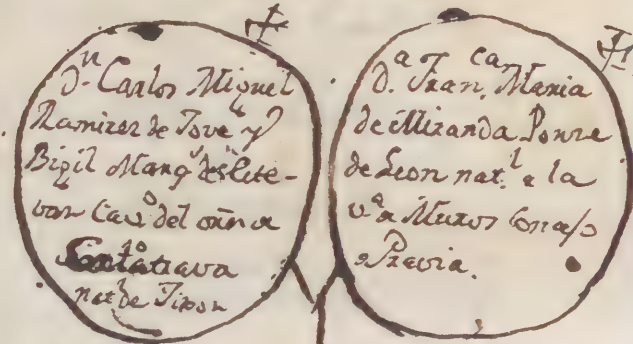 Dn. Carlos Miguel
Ramirez de Jove y
Bigil Marqs. de Sn. Este-
van Cavo. del orn. a
Calatrava
natl. de Jixon
Da. Franca. Maria
de Miranda Ponze
de Leon natl. a la
va. a Muros Conzo
Pravia.